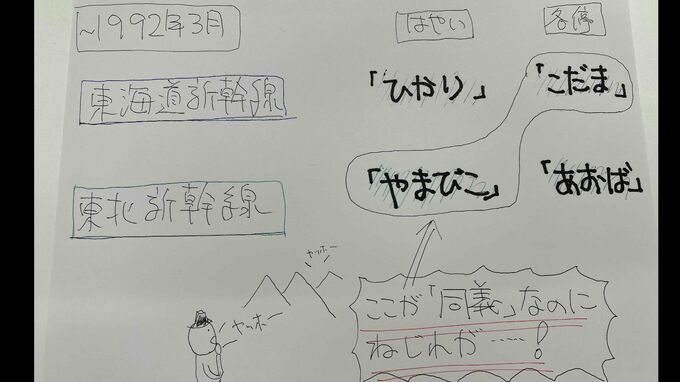 ~1992年3月
はやい
各停
東海道新幹線
「ひかり」
「こだま」
東北新幹線
「やまびこ」
「あおば」
ヤッホー
ヤッホー
ここが「同義」なのに
ねじれが……!